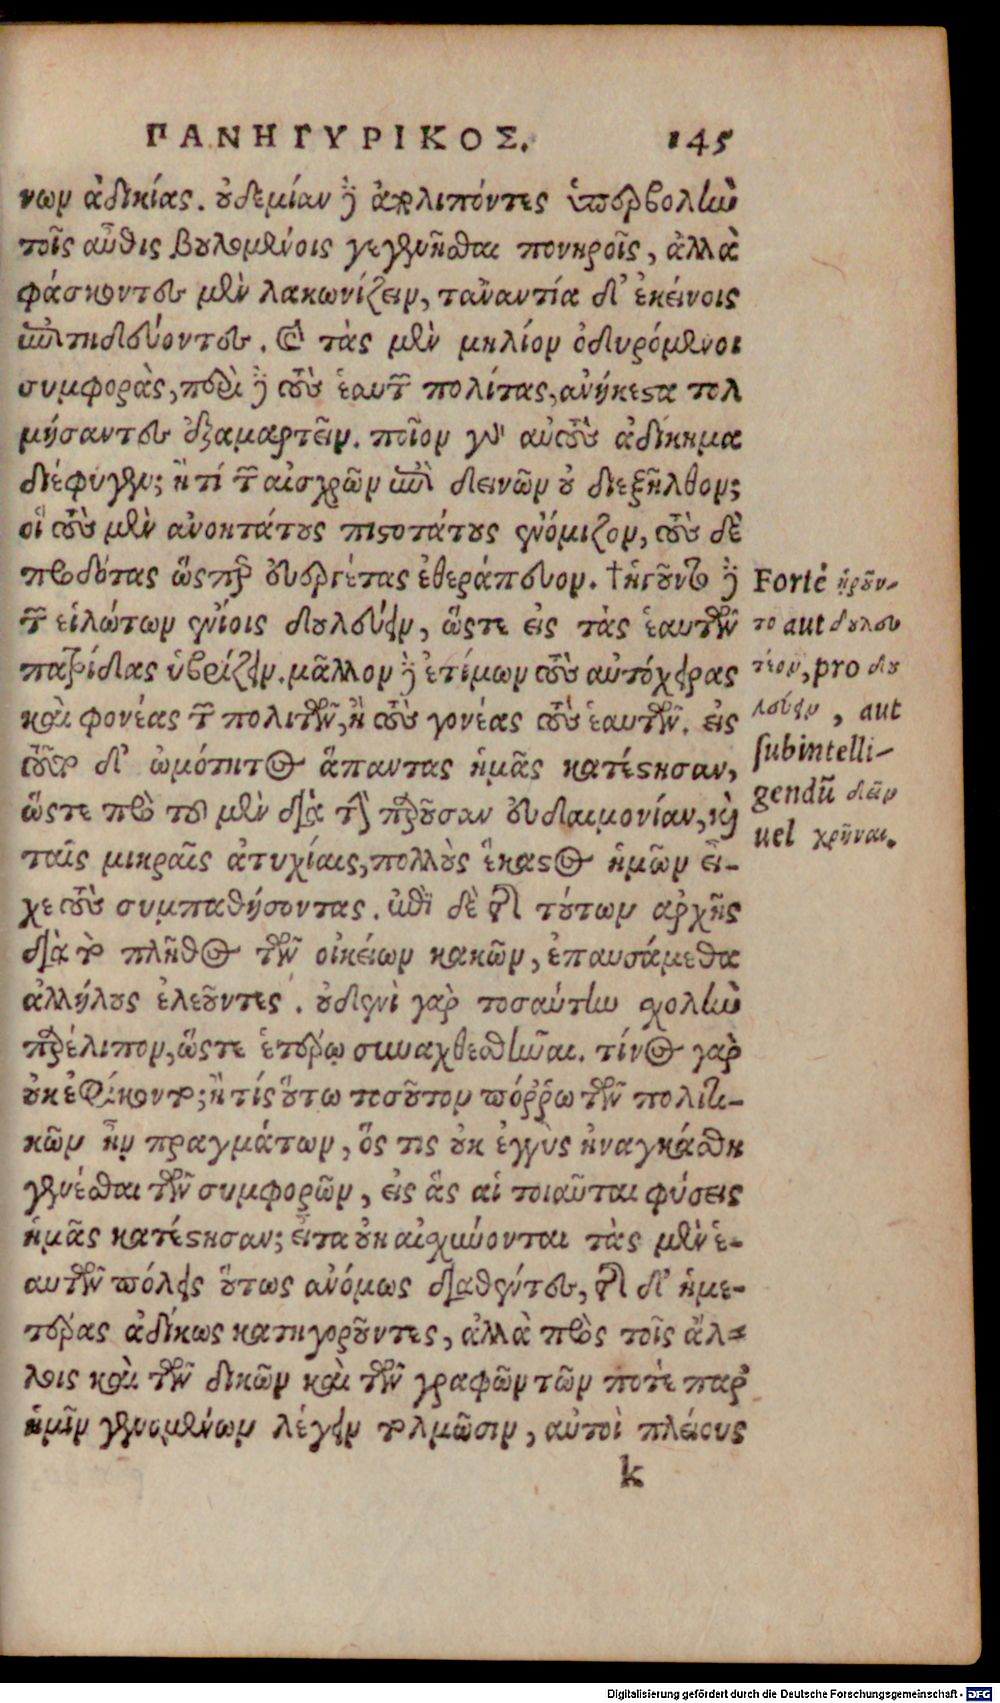 ΠΑΝΗΓΥΡΙΚΟΣ. 145
νων ἀδικίας. οὐδεμίαν δὲ ἀπολιπόντες ὑπερβολὴν
τοῖς αὖθις βουλομένοις γεγενῆσθαι πονηροῖς, ἀλλὰ
φάσκοντες μὲν λακωνίζειν, τἀναντία δ' ἐκείνοις
ἐπιτηδεύοντες. καὶ τὰς μὲν μηλίων ὀδυρόμενοι
συμφορὰς, περὶ δὲ τοὺς ἑαυτῶν πολίτας, ἀνήκεστα τολ
μήσαντες ἐξαμαρτεῖν. ποῖον γὰρ αὐτοὺς ἀδίκημα
διέφυγεν; ἢ τί τῶν αἰσχρῶν ἢ δεινῶν οὐ διεξῆλθον;
οἳ τοὺς μὲν ἀνοκτάτους πιστοτάτους ἐνόμιζον, τοὺς δὲ
προδότας ὥσπερ εὐεργέτας ἐθεράπευον. †ἡγοῦντο δὲ
τῶν εἱλώτων ἐνίοις δουλεύειν, ὥστε εἰς τὰς ἑαυτῶν
πατρίδας ὑβρίζειν. μᾶλλον δὲ ἐτίμων τοὺς αὐτόχειρας
καὶ φονέας τῶν πολιτῶν, ἢ τοὺς γονέας τοὺς ἑαυτῶν. εἰς
τοῦτο δ' ὠμότητος ἅπαντας ἡμᾶς κατέστησαν,
ὥστε πρὸ τοῦ μὲν διὰ τὴν παροῦσαν εὐδαιμονίαν, καὶ
ταῖς μικραῖς ἀτυχίαις, πολλοὺς ἕκαστος ἡμῶν εἶ-
χε τοὺς συμπαθήσοντας. ἐπὶ δὲ τῆς τούτων ἀρχῆς
διὰ τὸ πλῆθος τῶν οἰκείων κακῶν, ἐπαυσάμεθα
ἀλλήλους ἐλεοῦντες. οὐδενὶ γὰρ τοσαύτην σχολὴν
παρέλιπον, ὥστε ἑτέρῳ συναχθεσθῆναι. τίνος γὰρ
οὐκ ἐφίκοντο; ἢ τίς οὕτω τοσοῦτον πόῤῥω τῶν πολιτι-
κῶν ἦν πραγμάτων, ὅς τις οὐκ ἐγγὺς ἠναγκάσθη
γενέσθαι τῶν συμφορῶν, εἰς ἃς αἱ τοιαῦται φύσεις
ἡμᾶς κατέστησαν; εἶτα οὐκ αἰσχύνονται τὰς μὲν ἑ-
αυτῶν πόλεις οὕτως ἀνόμως διαθέντες, τῆς δ' ἡμε-
τέρας ἀδίκως κατηγοροῦντες, ἀλλὰ πρὸς τοῖς ἄλ-
λοις καὶ τῶν δικῶν καὶ τῶν γραφῶν τῶν ποτὲ παρ'
ἡμῖν γενομένων λέγειν τολμῶσιν, αὐτοὶ πλείους
k
Fortè ᾑροῦν-
το aut δουλευ
τέον, pro δου
λεύειν, aut
subintelli-
gendũ δεῖν
uel χρῆναι.
Digitalisierung gefördert durch die Deutsche Forschungsgemeinschaft - DFG